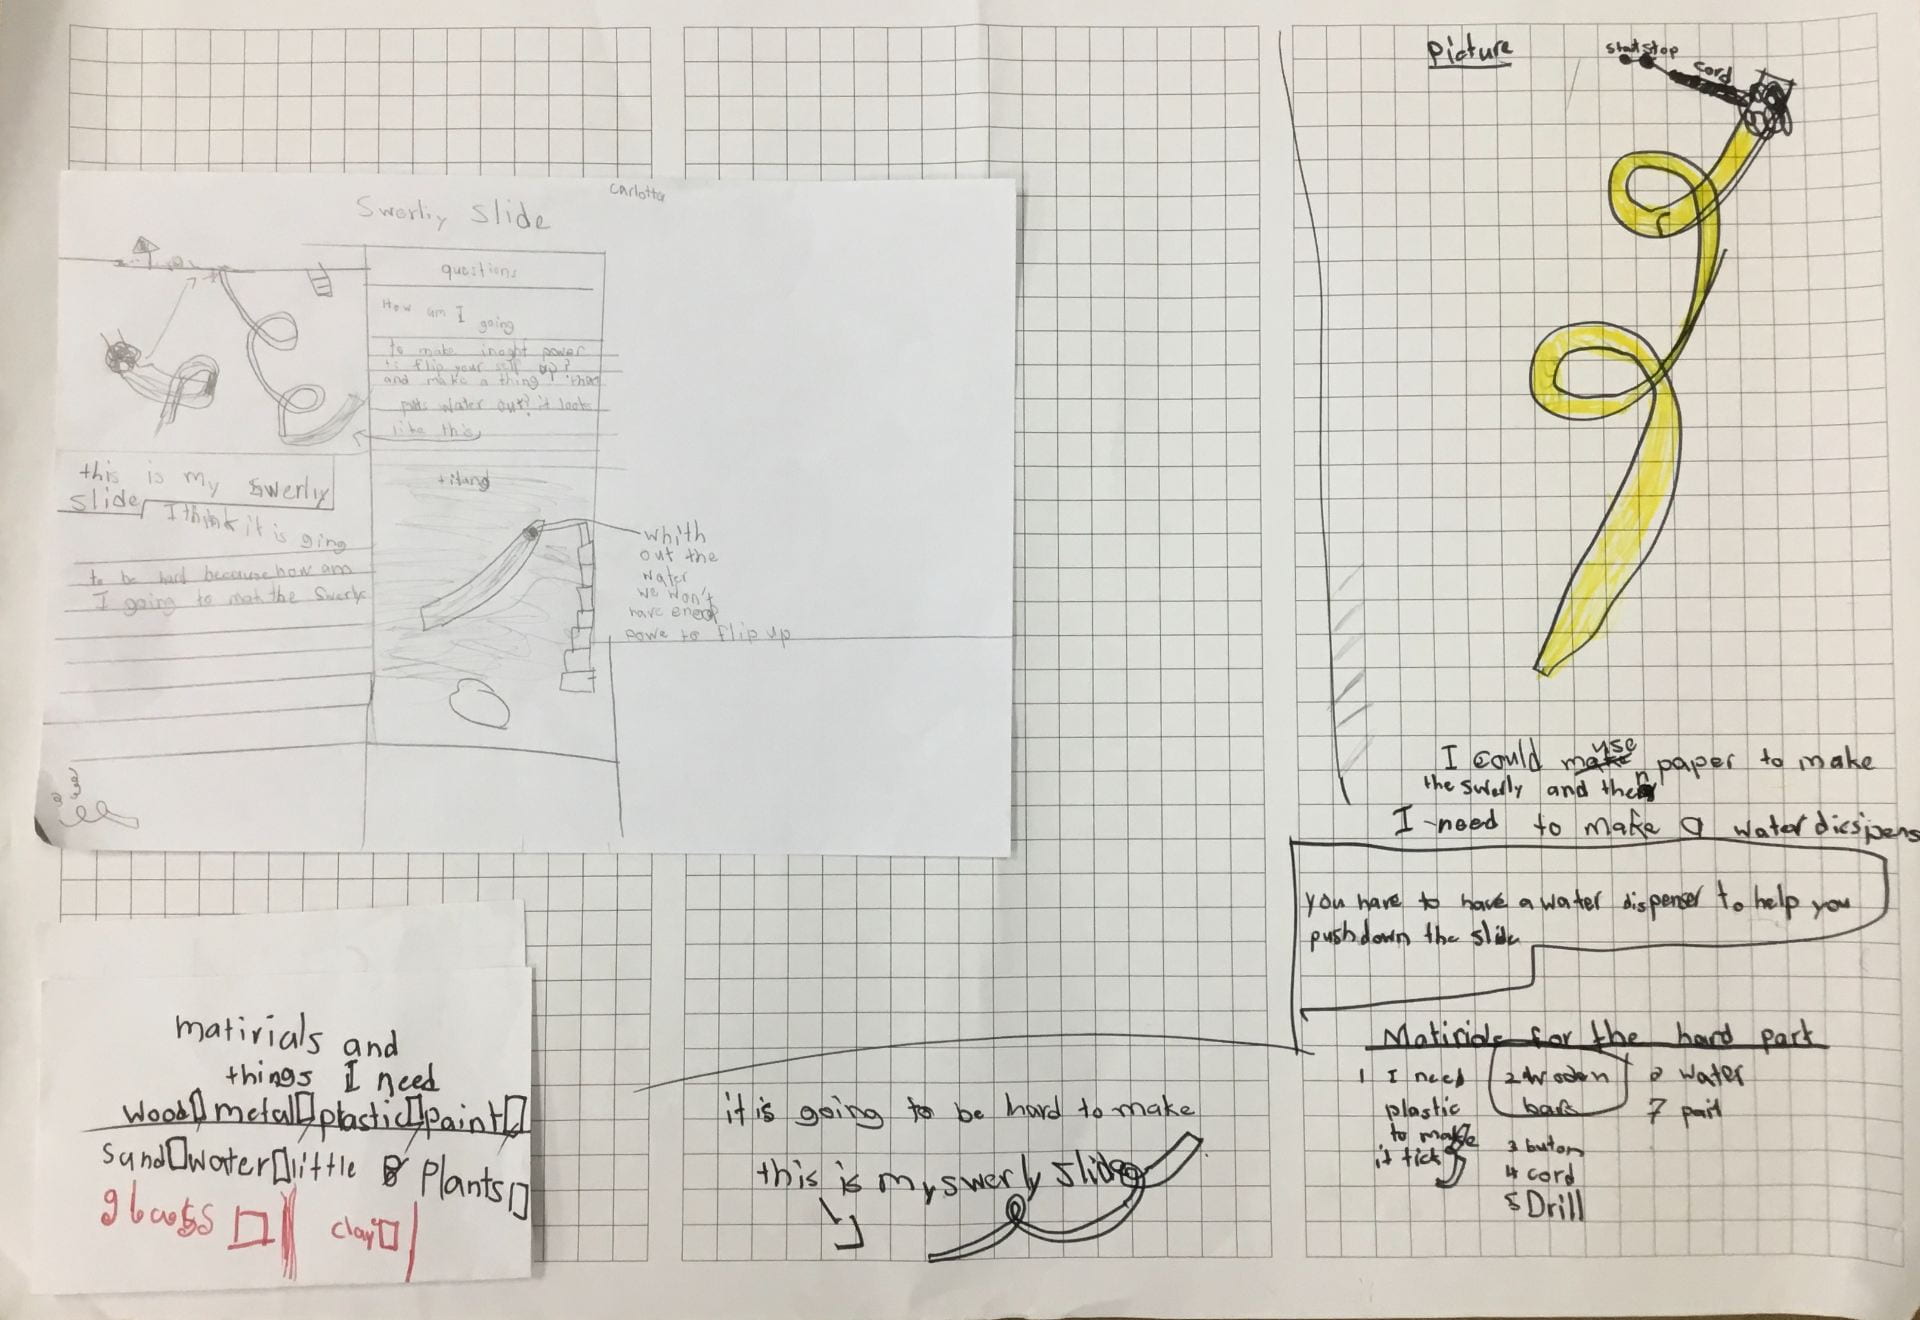 Carlotta
Swerliy Slide
questions
How am I
going
to make inoght power
to flip your self up?
and make a thing that
puts water out? it looks
like this
this is my swerly
slide I think it is ging
to be hard because how am
I going to mak the Swerly
whith
out the
water
we won't
have
powe to flip up
matirials and
things I need
wood metal plastic paint
sand water little Plants
clay
it is going to be hard to make
this is my swerly slide
Picture
start stop
cord
I could use paper to make
the swerlly and then
I need to make a water dicspens
you have to have a water dispenser to help you
push down the slide
Matirials for the hard part
1 I need
plastic
to make
it tick
2 wooden
bars
3 buton
4 cord
5 Drill
6 water
7 pait